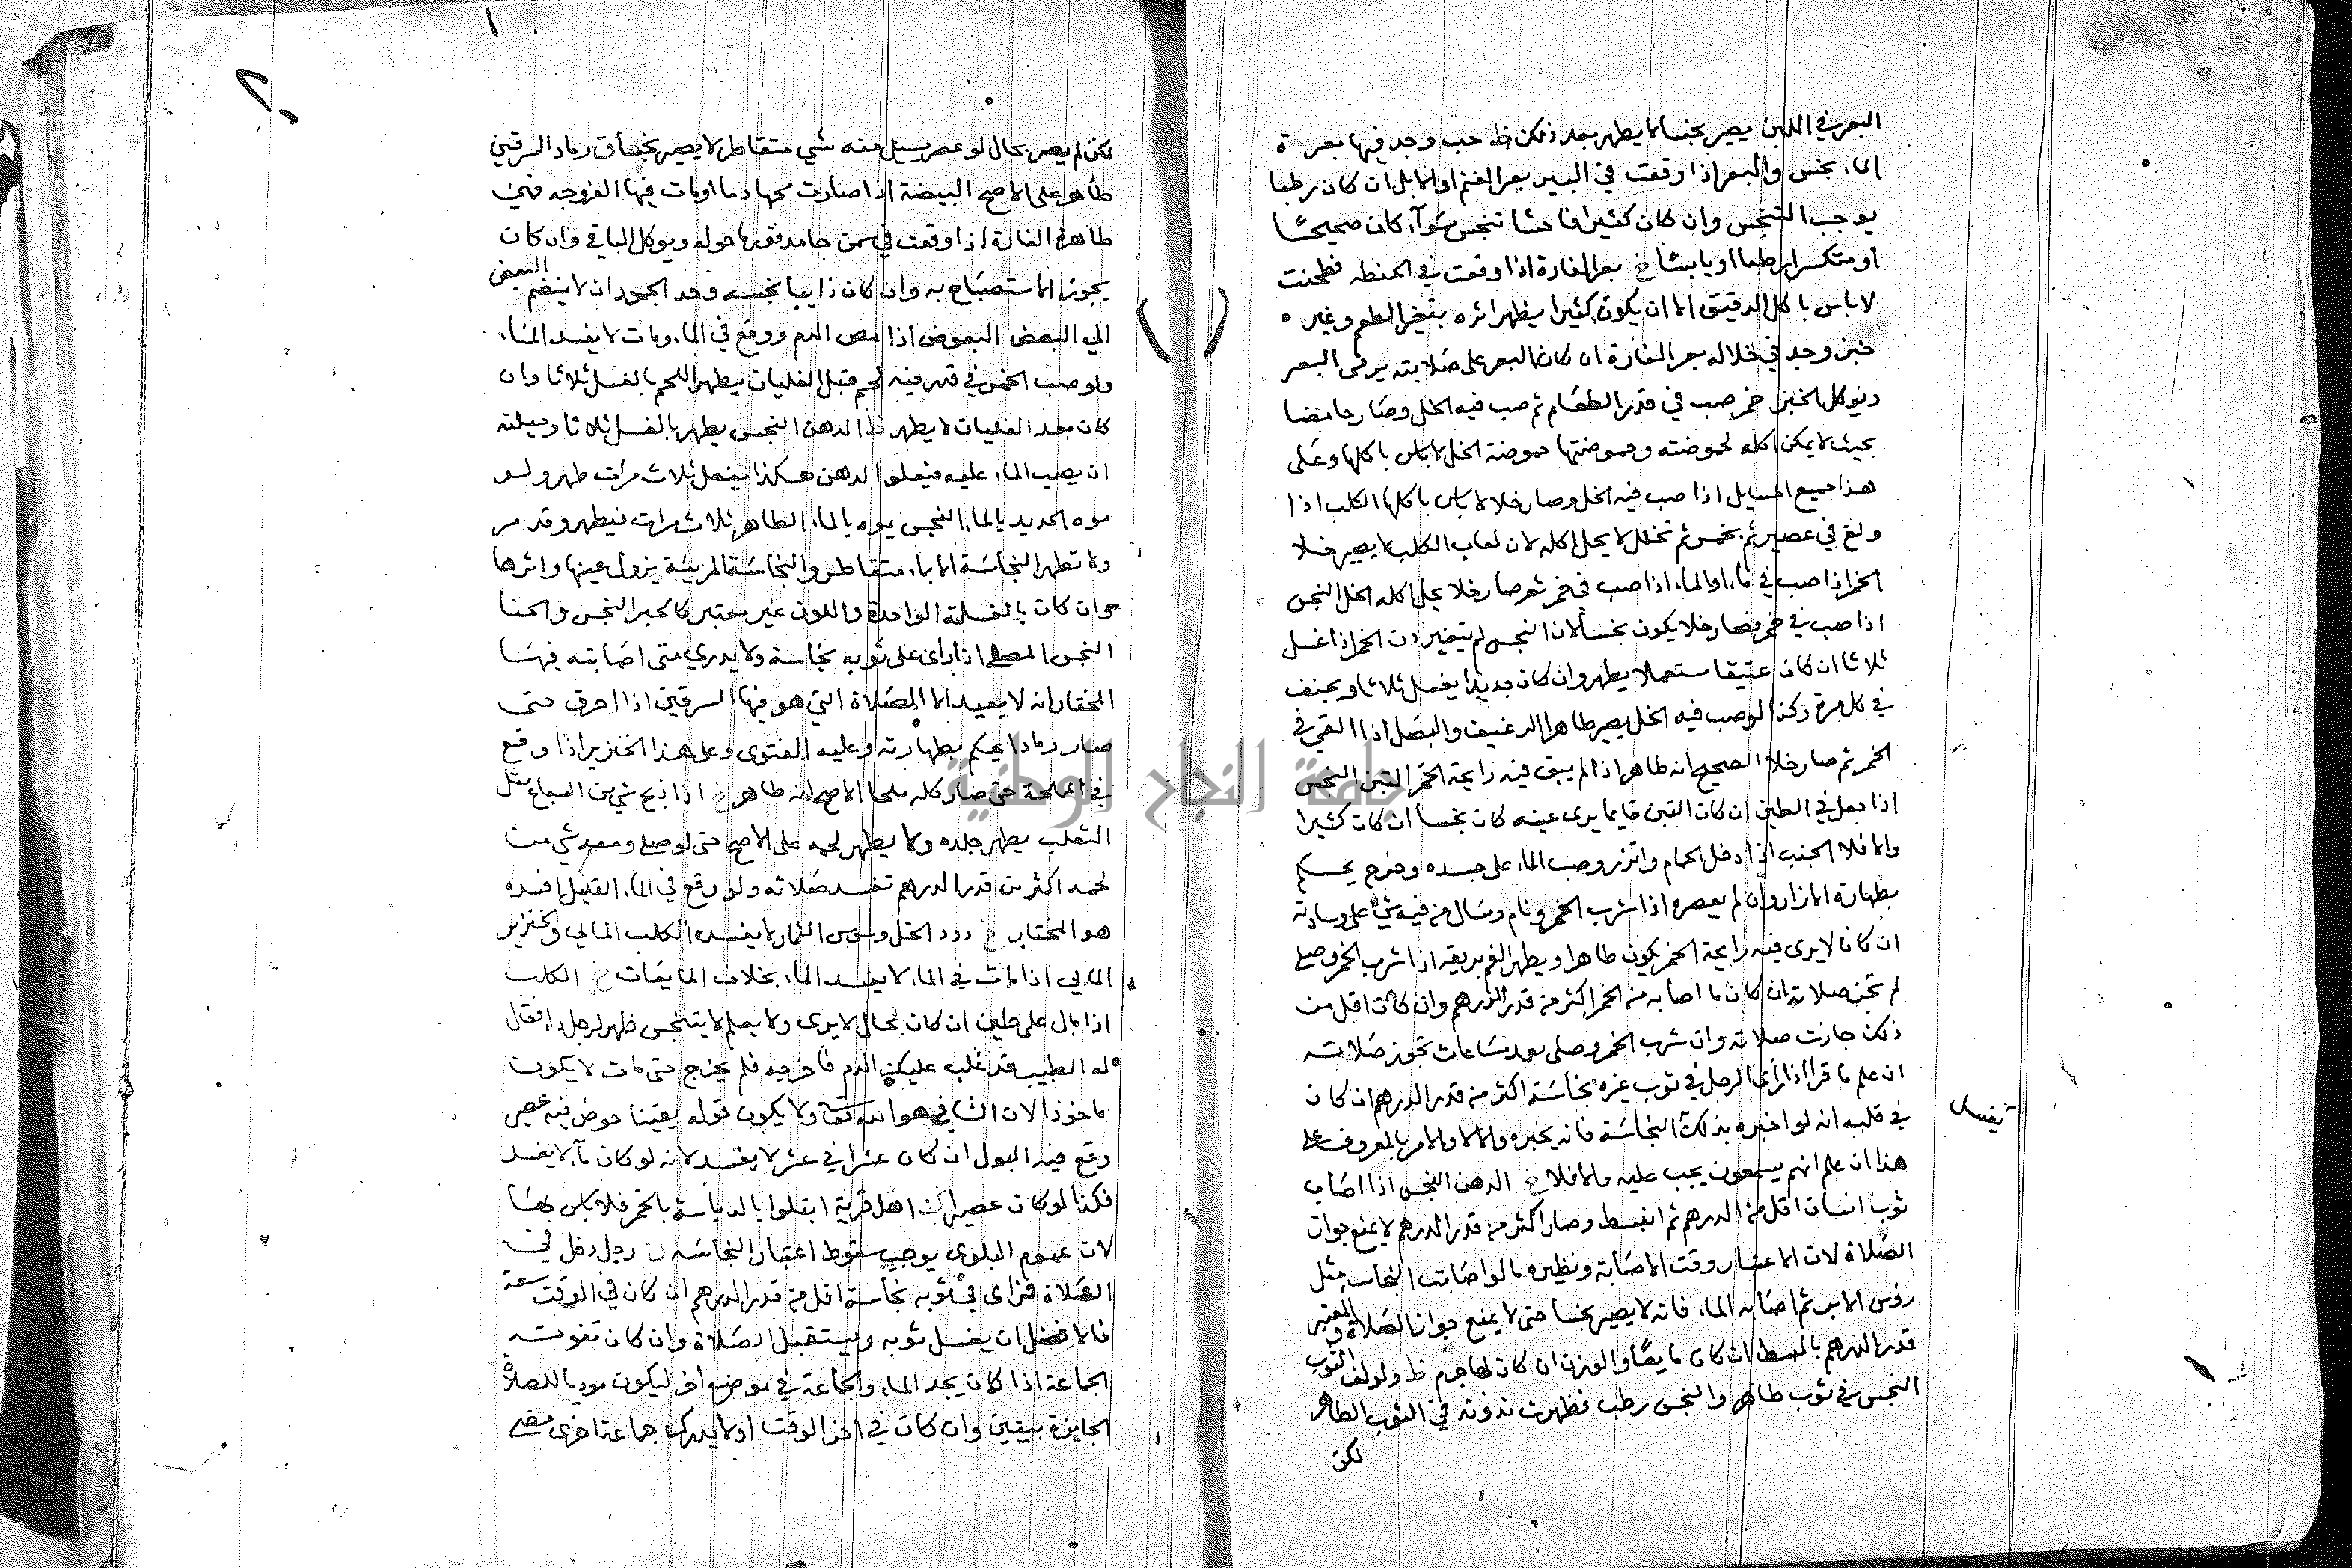 البعر في اللبن يصير نجسا لا يطهر بعد ذلك ظ حب وجد فيها بعرة
الماء نجس والبعر اذا وقعت في البير بعر الغنم او الابل ان كان رطبا
يوجب التنجس وان كان كثيرا فاحشا تنجس سوآء كان صحيحًا
او متكسرا رطبا او يابسًا خ بعر الفارة اذا وقعت في الحنطه فطحنت
لا باس باكل الدقيق الا ان يكون كثيرا يظهر اثره بتغير الطعم وغيره
خبز وجد في خلاله بعر الفارة ان كان البعر على صلابته يرمى البعر
ويوكل الخبز خمر صب في قدر الطعام ثم صب فيه الخل وصار حامضا
بحيث لا يمكن اكله لحموضته وحموضتها حموضة الخل لا باس باكلها وعلى
هذا جميع المسايل اذا صب فيه الخل وصار خلا لا باس باكلها الكلب اذا
ولغ في عصير ثم تخمر ثم تخلل لا يحل اكله لان لعاب الكلب لا يصير خلا
الخمر اذا صب في ماء او الماء اذا صب في خمر ثم صار خلا يحل اكله الخل النجس
اذا صب في خمر فصار خلا يكون نجسا لان النجس لم يتغير دن الخمر اذا غسل
ثلاثا ان كان عتيقا مستعملا يطهر وان كان جديدا يغسل ثلاثا ويجفف
في كل مرة وكذا لو صب فيه الخل يصير طاهرا الرغيف والبصل اذا القي في
الخمر ثم صار خلا الصحيح انه طاهر اذا لم يبق فيه رايحة الخمر التبن النجس
اذا جعل في الطين ان كان التبن قايما يرى عينه كان نجسا ان كان كثيرا
والا فلا الجنب اذا دخل الحمام واتزر وصب الماء على جسده وخرج يحكم
بطهارة الازار وان لم يعصره اذا شرب الخمر ونام وسال من فيه شي على وسادته
ان كان لا يرى فيه رايحة الخمر يكون طاهرا ويطهر الفم بريقه اذا شرب الخمر وصلى
لم تجز صلاته ان كان ما اصابه من الخمر اكثر من قدر الدرهم وان كان اقل من
ذلك جازت صلاته وان شرب الخمر وصلى بعد ساعات تجوز صلاته
ان علم ما قرا اذا راى الرجل في ثوب غيره نجاسة اكثر من قدر الدرهم ان كان
في قلبه انه لو اخبره بذلك النجاسة فانه يخبره والا لا والامر بالمعروف على
يغسل
هذا ان علم انهم يسمعون يجب عليه والا فلا خ الدهن النجس اذا اصاب
ثوب انسان اقل من الدرهم ثم انبسط وصار اكثر من قدر الدرهم لا يمنع جواز
الصلاة لان الاعتبار وقت الاصابة ونظيره ما لو اصابت النجاسة مثل
روس الابر ثم اصابه الماء فانه لا يصير نجسا حتى لا يمنع جواز الصلاة و المعتبر
قدر الدرهم بالبسط ان كان مايعا والوزن ان كان لها جرم ظ ولو لف الثوب
النجس في ثوب طاهر والنجس رطب فظهرت ندوته في الثوب الطاهر
لكن
لكن لم يصر بحال لو عصر يسيل منه شي متقاطر لا يصير نجسا ق رماد السرقين
طاهر على الاصح البيضة اذا صارت محها دما او مات فيها الفروجه فهي
طاهرة الفارة اذا وقعت في سمن جامد قور ما حوله ويوكل الباقي وان كان
يجوز الاستصباح به وان كان ذايبا نجسه وحد الجمود ان لا ينضم البعض
الي البعض البعوض اذا مص الدم ووقع في الماء ومات لا يفسد الماء
ولو صب الخمر في قدر فيه لحم قبل الغليان يطهر اللحم بالغسل ثلاثا وان
كان بعد الغليان لا يطهر ظ الدهن النجس يطهر بالغسل ثلاثا وحيلته
ان يصب الماء عليه فيعلو الدهن هكذا يفعل ثلاث مرات طهر ولو
موه الحديد بالماء النجس يموه بالماء الطاهر ثلاث مرات فيطهر وقد مر
ولا تطهر النجاسة الا بماء متقاطر والنجاسة المريية يزول عينها واثرها
وان كان بالغسلة الواحدة واللون غير معتبر كالحبر النجس والحنا
النجس المصلي اذا راى على ثوبه نجاسة ولا يدري متى اصابته فيها
المختار انه لا يعيد الا الصلاة التي هو فيها السرقين اذا احرق حتى
صار رمادا يحكم بطهارته وعليه الفتوى وعلى هذا الخنزير اذا وقع
في المملحة حتى صار كله ملحا الاصح انه طاهر خ اذا ذبح شي من السباع مثل
الثعلب يطهر جلده ولا يطهر لحمه على الاصح حتى لو صلى ومعه شي من
لحمه اكثر من قدر الدرهم تفسد صلاته ولو وقع في الماء القليل افسده
هو المختار خ دود الخل وسوس الثمار لا يفسده الكلب المائي والخنزير
المائي اذا مات في الماء لا يفسد الماء بخلاف المايعات خ الكلب
اذا بال على طين ان كان بحال لا يرى ولا يعلم لا يتنجس ظهر لرجل داء فقال
له الطبيب قد غلب عليك الدم فاخرجه فلم يخرج حتى مات لا يكون
ماخوذا لان الشافي هو الله تعا ولا يكون قوله يقينا حوض فيه عصير
وقع فيه البول ان كان عشرا في عشر لا يفسد لانه لو كان مآء لا يفسد
فكذا لو كان عصيرا ن اهل قرية ابتلوا بالدياسة بالخمر فلا باس بها
لان عموم البلوى يوجب سقوط اعتبار النجاسة ن رجل دخل في
الصلاة فراى في ثوبه نجاسة اقل من قدر الدرهم ان كان في الوقت سعة
فالافضل ان يغسل ثوبه ويستقبل الصلاة وان كان تفوته
الجماعة اذا كان يجد الماء والجماعة في موضع آخر ليكون موديا للصلاة
الجايزة بيقين وان كان في اخر الوقت او لا يدرك جماعة اخرى مضى
جامعة النجاح الوطنية